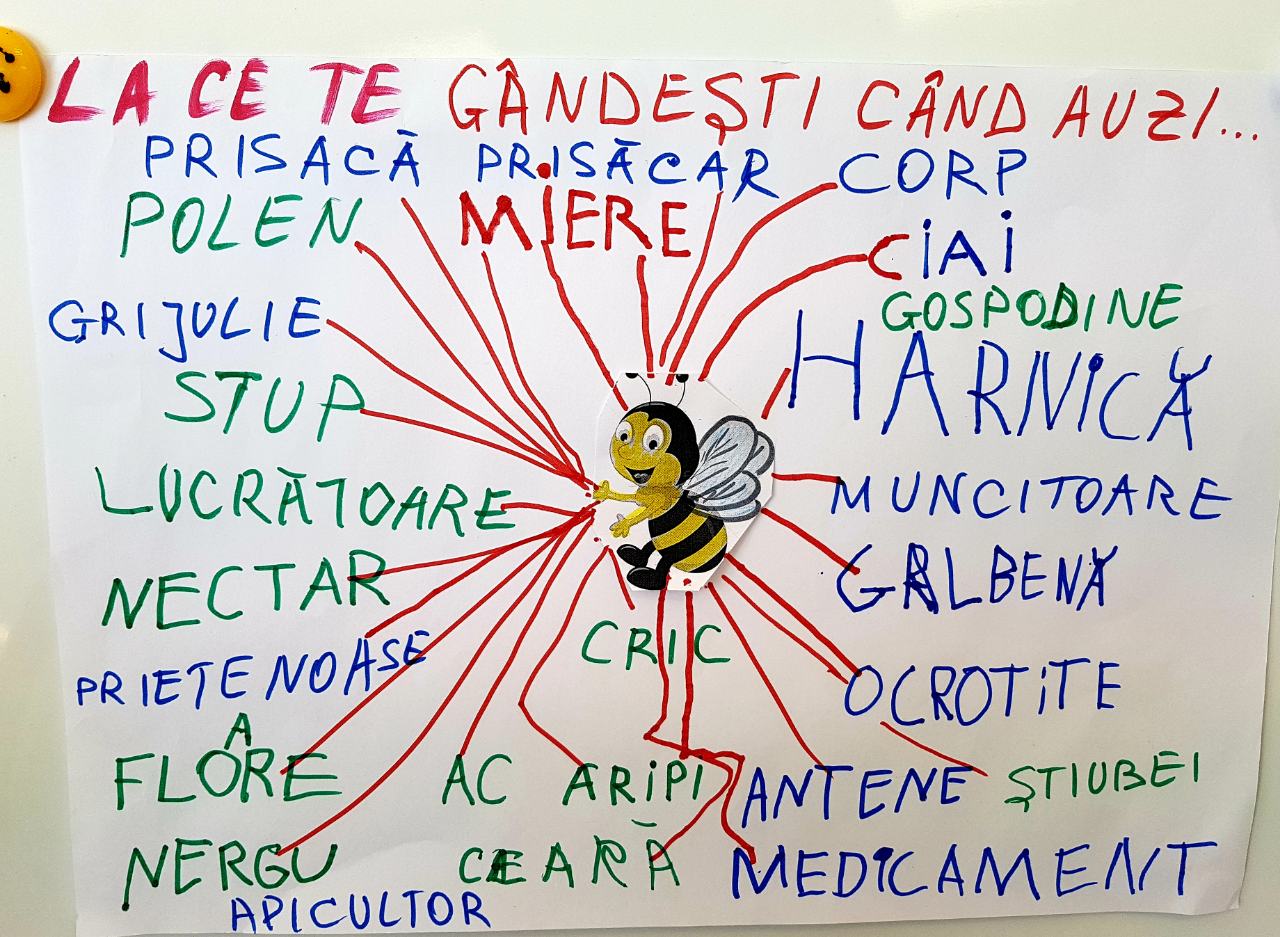 LA CE TE GÂNDEȘTI CÂND AUZI...
PRISACĂ PRISĂCAR CORP
POLEN MIERE CIAI
GRIJULIE GOSPODINE
STUP HARNICĂ
LUCRĂTOARE MUNCITOARE
NECTAR GALBENĂ
PRIETENOASE CRIC OCROTITE
A
FLORE AC ARIPI ANTENE ȘTIUBEI
NERGU CEARĂ MEDICAMENT
APICULTOR